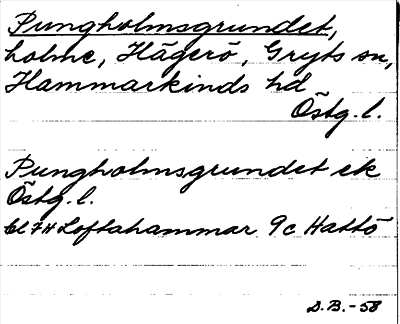 Pungholmsgrundet,
holme, Hägerö, Gryts sn,
Hammarkinds hd
Östg. l.
Pungholmsgrundet ek
Östg. l.
bl 7H Loftahammar 9c Hattö
D.B. -58